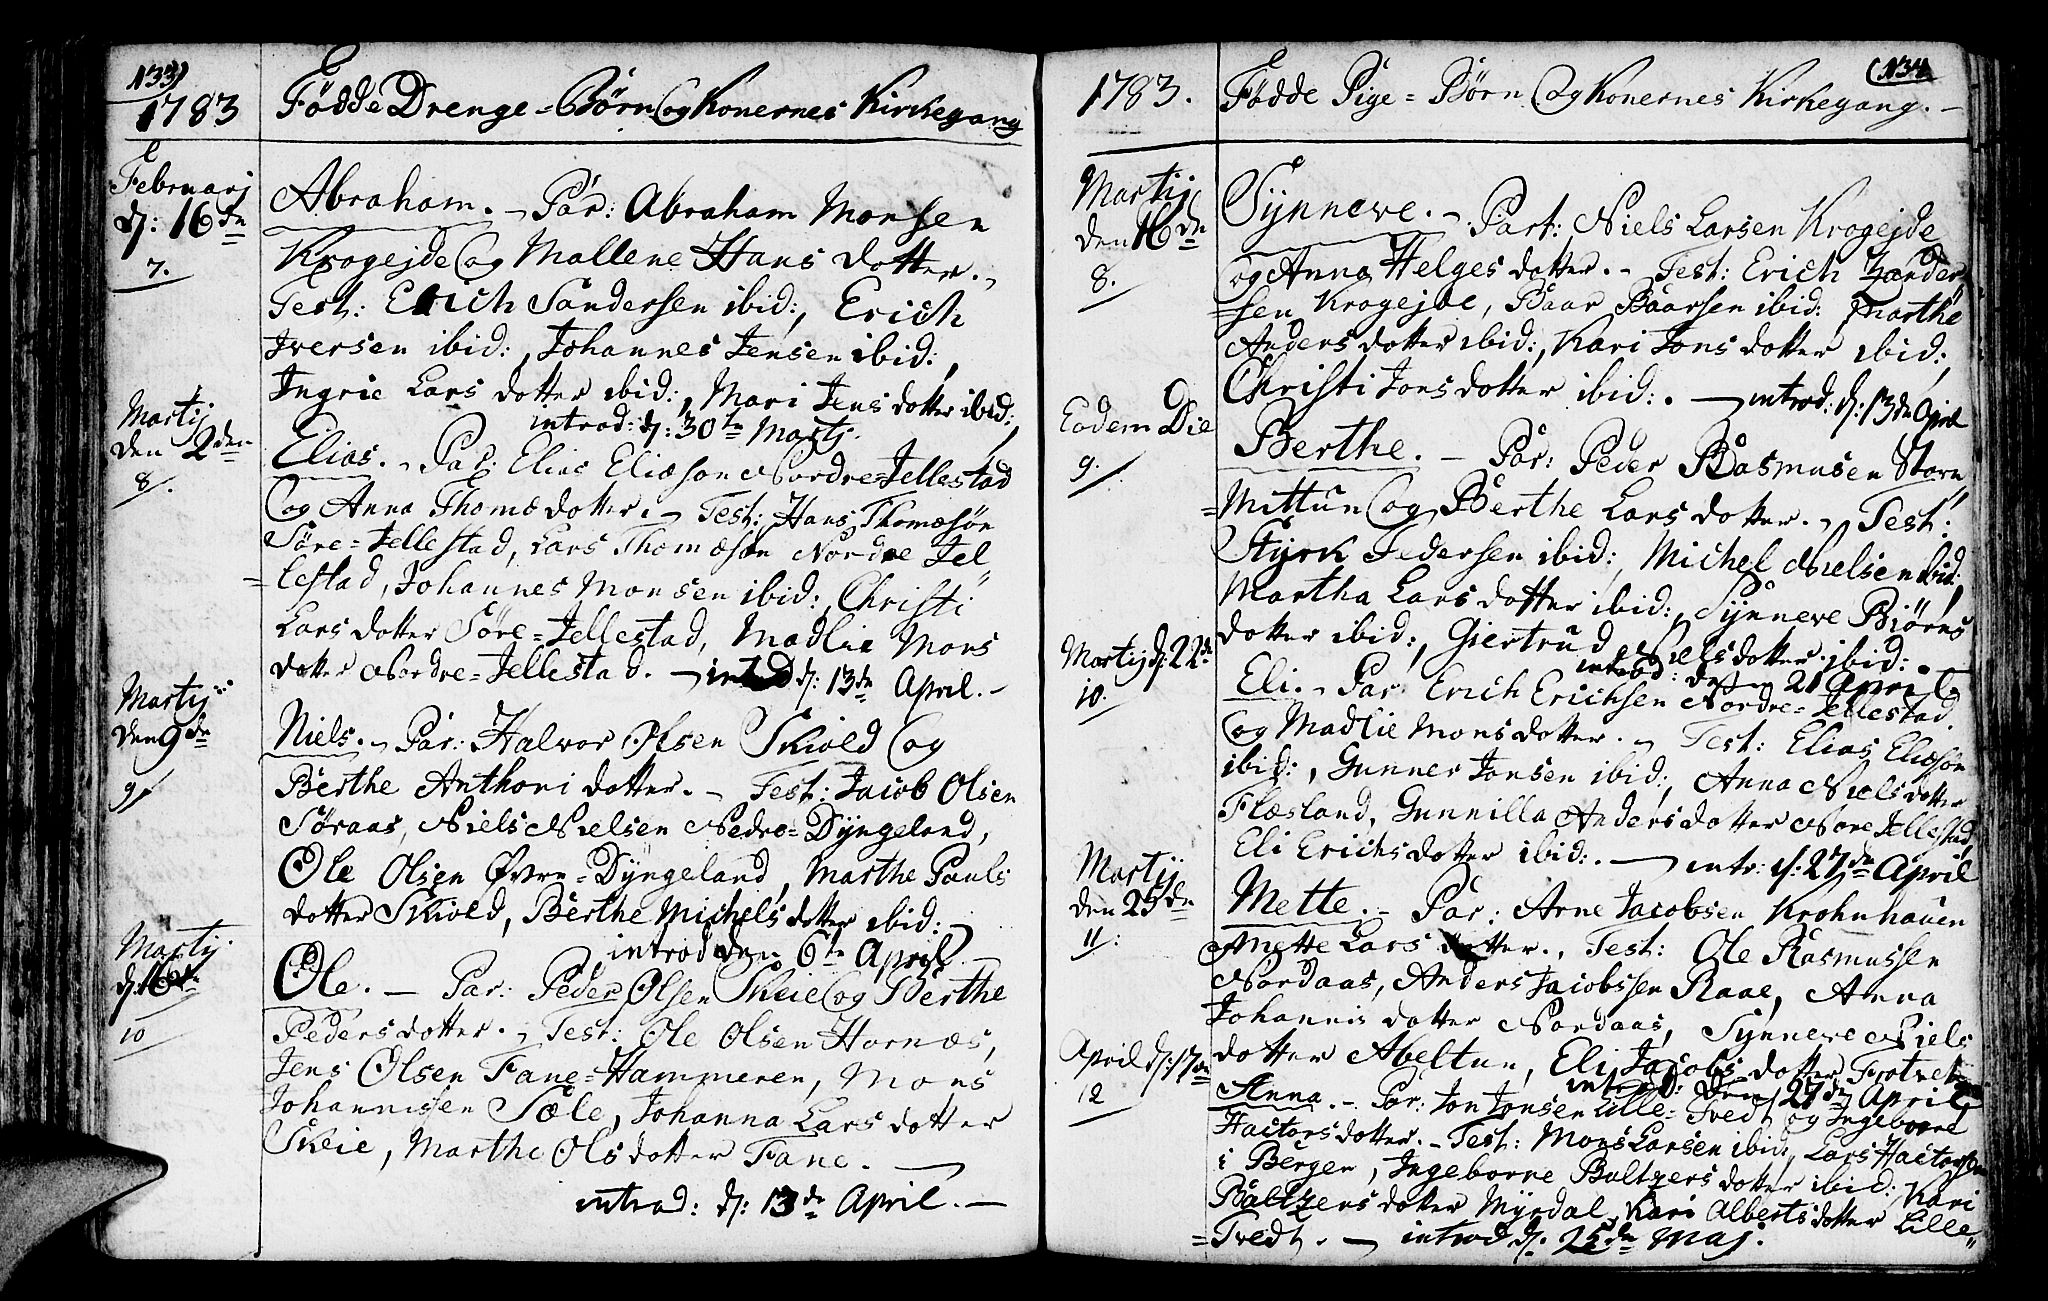 133)
1783
Fødde Drenge-Børn og Konernes Kirkegang
Februarj
d: 16de
7.
Abraham. - Par: Abraham Monsen
Krogejde og Mallene Hans dotter. -
Test: Erich Sandersen ibid:, Erich
Iversen ibid:, Johannes Jensen ibid:,
Ingrie Lars dotter ibid:, Mari Jens dotter ibid:,
introd: d: 30te Martj.
Martij
den 2den
8.
Elias. - Par: Elias Eliæson Nordre-Jellestad
og Anna Thomæ dotter. - Test: Hans Thomæsøn
Søre-Jellestad, Lars Thomæsøn Nordre Jel-
=lestad, Johannes Monsen ibid:, Christi
Lars dotter Søre-Jellestad, Madlie Mons
dotter Nordre-Jellestad. - introd d: 13de April. -
Martij
den 9de
9.
Niels. - Par: Halvor Olsen Skiold og
Berthe Anthoni dotter. - Test: Jacob Olsen
Søraas, Niels Nielsen Nedre-Dyngeland,
Ole Olsen Øvre-Dyngeland, Marthe Pouls
dotter Skiold, Berthe Michels dotter ibid: -
introd den 6te April. -
Martij
d: 16de
10
Ole. - Par: Peder Olsen Skeie og Berthe
Peders dotter. - Test: Ole Olsen Hornæs,
Jens Olsen Fane-Hammeren, Mons
Johannissen Sæle, Johanna Lars dotter
Skeie, Marthe Olsdotter Fane. -
introd: d: 13de April. -
(134
1783.
Fødde Pige-Børn og Konernes Kirkegang. -
Martij
den 16de
8.
Synneve. - Part: Niels Larsen Krogejde
og Anna Helges dotter. - Test: Erich Zander-
=sen Krogejde, Baar Baarsen ibid: Marthe
Anders dotter ibid:, Kari Jons dotter ibid:,
Christi Jonsdotter ibid:. - introd: d: 13de April
Eodem Die
9.
Berthe. - Par: Peder Rasmusen Store
=Mittun og Berthe Lars dotter. - Test:
Styrk Pedersen ibid:, Michel Nielsen ibid:
Martha Lars dotter ibid:, Synneve Biørns
dotter ibid:, Giertrud Nielsdotter ibid:.
introd: den 21 April.
Martij d: 22de
10.
Eli. - Par: Erich Erichsen Nordre-Jellestad
og Madlie Monsdotter. - Test: Elias Eliæson
ibid:, Gunner Jonsen ibid:, Anna Niels dotter
Flæsland, Gunnilla Anders dotter Nore Jellestad,
Eli Erichsdotter ibid:. - intr: d: 27de April
Martij
den 25de
11:
Mette. - Par: Arne Jacobsen Krohnhauen
Mette Lars dotter., Test: Ole Rasmussen
Nordaas, Anders Jacobssen Raae, Anna
Johannis dotter Nordaas, Synneve Niels
dotter Abeltun, Eli Jacobs dotter Frotvet
introd: den 27de April
April d: 17de
12
Anna. - Par: Jon Jonsen Lille-Tvedt og Ingeborre
Hactorsdotter. - Test: Mons Larsen ibid:, Lars Hactorsen
i Bergen, Ingeborre Baltzersdotter ibid:, Kari
Baltzers dotter Myrdal, Kari Albertsdotter Lille
=Tvedt. - introd d: 25de Maj.